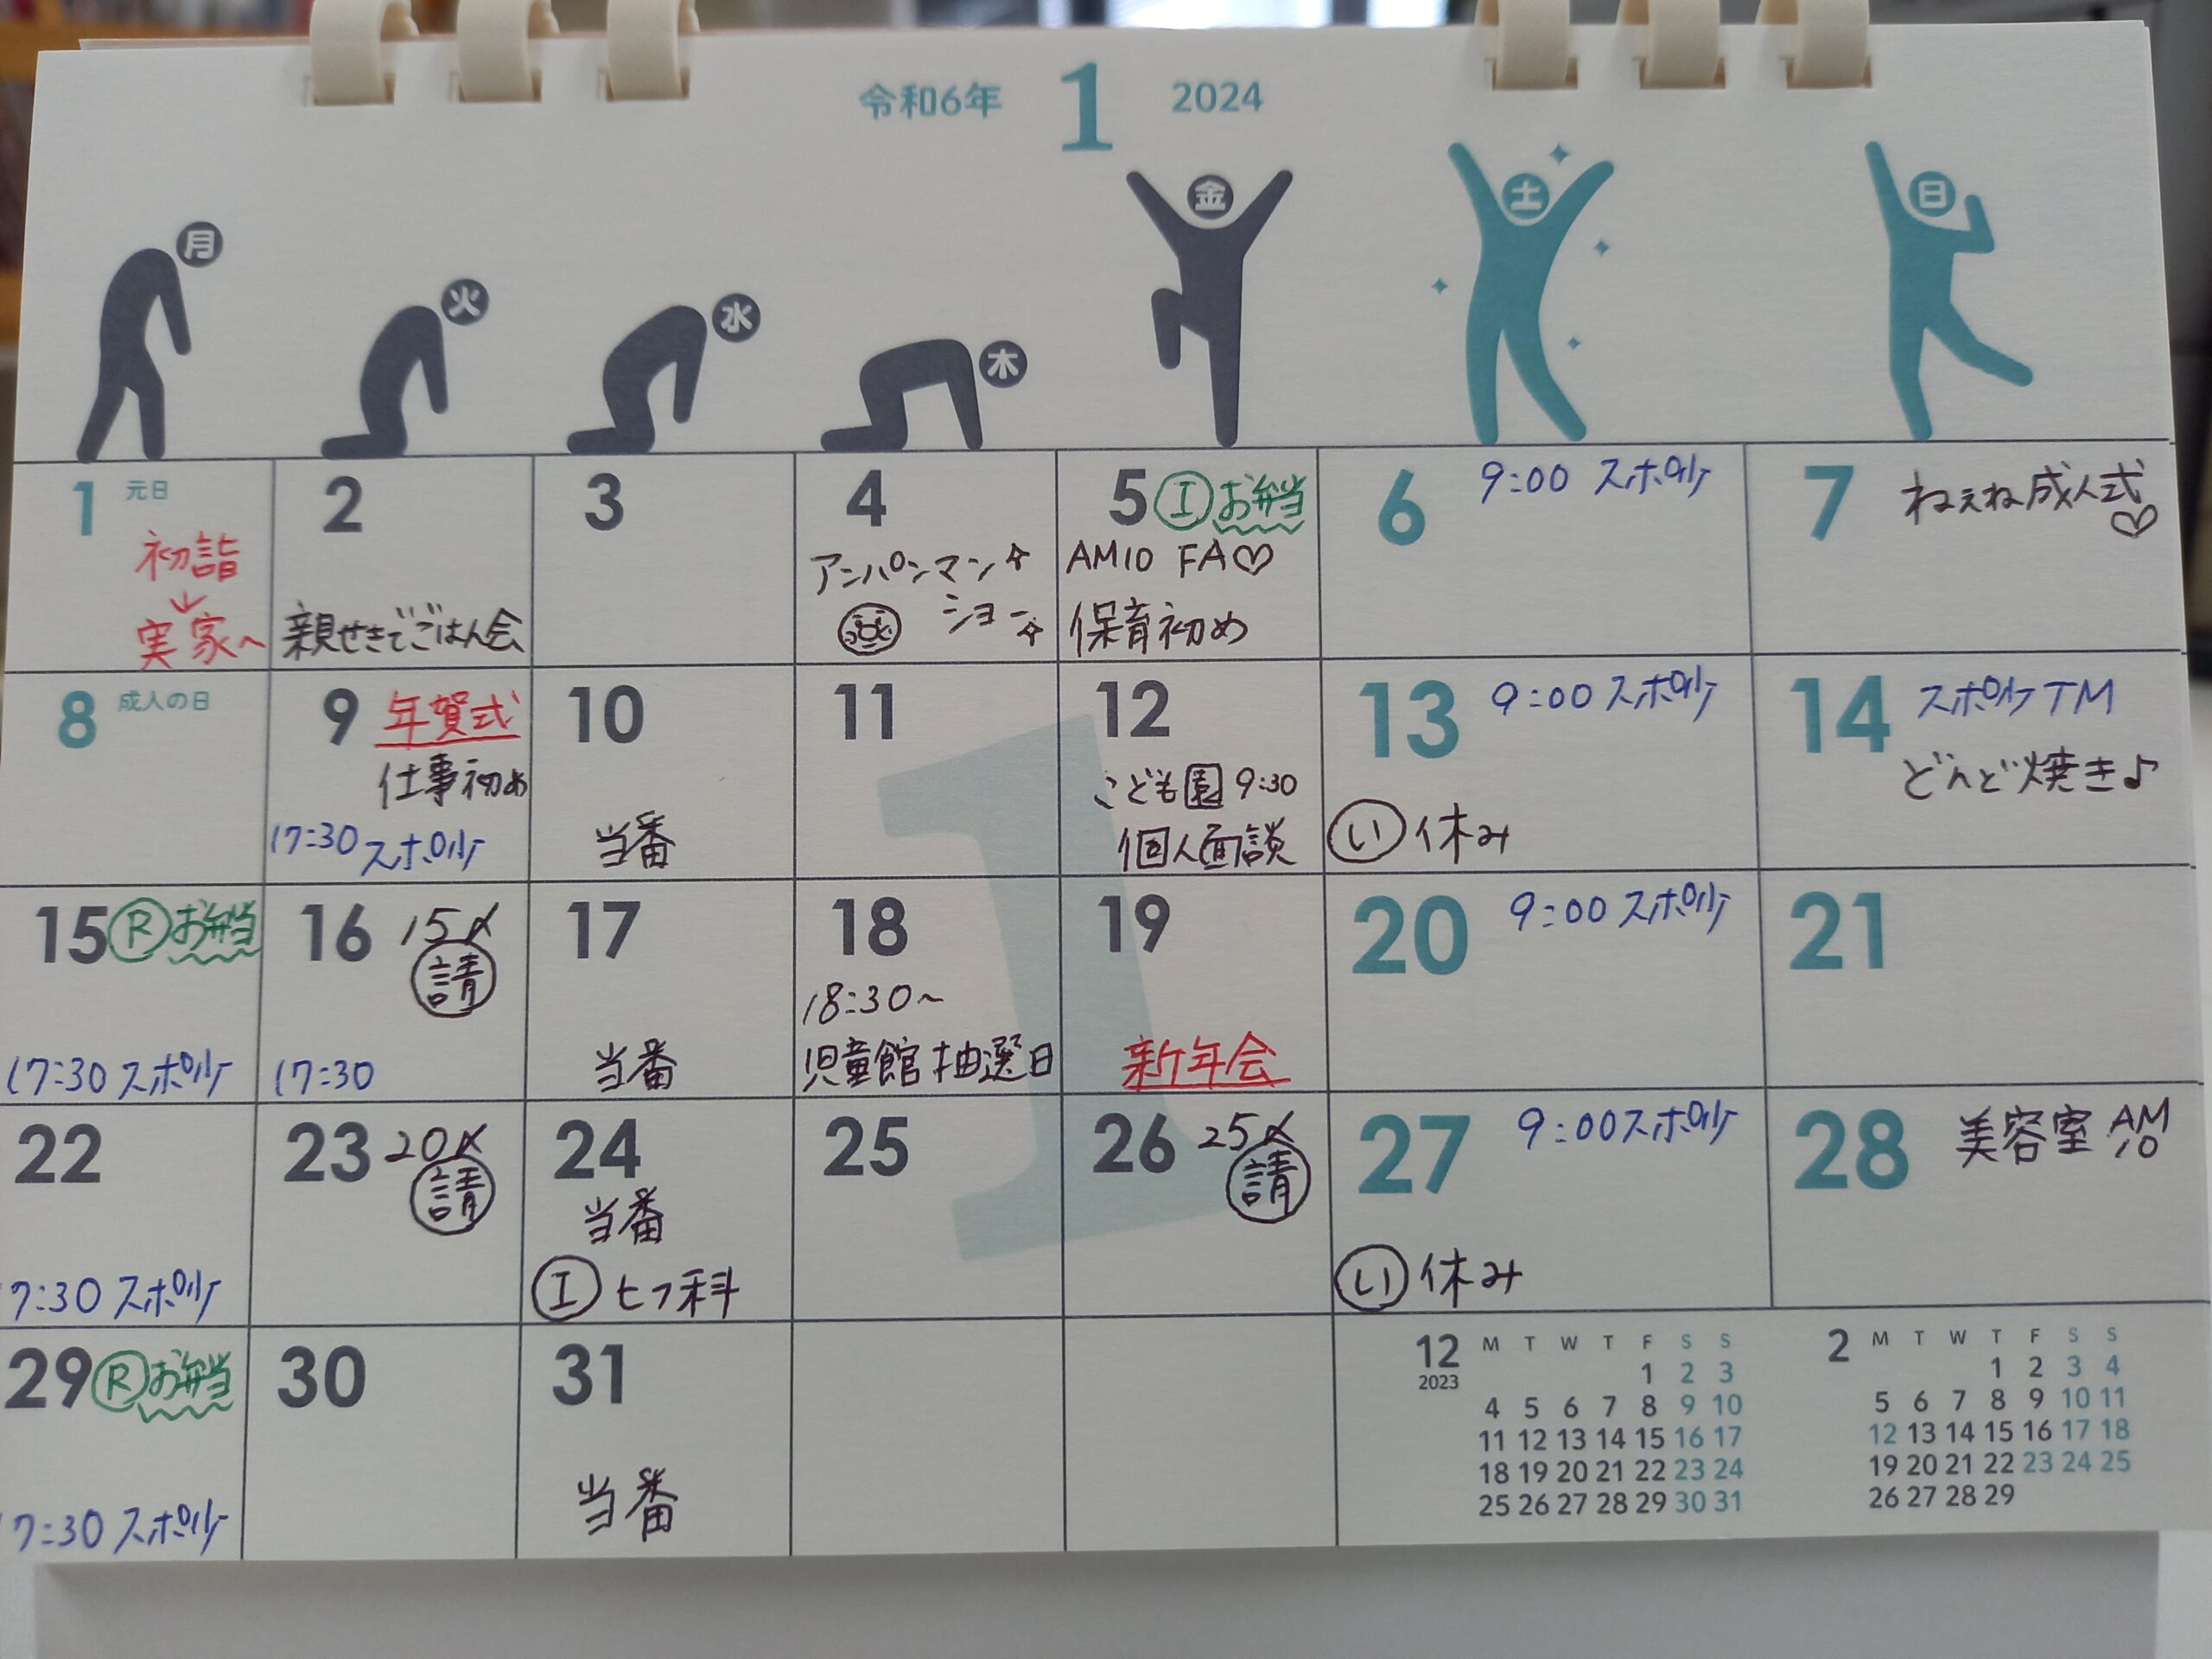 令和6年 1 2024
月 火 水 木 金 土 日
1 元日
初詣
実家へ
2
親せきでごはん会
3
4
アンパンマン
ショー
5 Ⓘ お弁当
AM10 FA♡
保育初め
6 9:00 スポ少
7 ねぇね成人式
♡
8 成人の日
9 年賀式
仕事初め
17:30 スポ少
10
当番
11
12
こども園 9:30
個人面談
13 9:00 スポ少
い 休み
14 スポ少TM
どんど焼き♪
15 Ⓡ お弁当
17:30 スポ少
16 15〆
請
17:30
17
当番
18
18:30~
児童館 抽選日
19
新年会
20 9:00 スポ少
21
22
7:30 スポ少
23 20〆
請
24
当番
Ⓘ ヒフ科
25
26 25〆
請
27 9:00スポ少
い 休み
28 美容室 AM
10
29 Ⓡ お弁当
7:30 スポ少
30
31
当番
1
12 M T W T F S S
2023 1 2 3
4 5 6 7 8 9 10
11 12 13 14 15 16 17
18 19 20 21 22 23 24
25 26 27 28 29 30 31
2 M T W T F S S
1 2 3 4
5 6 7 8 9 10 11
12 13 14 15 16 17 18
19 20 21 22 23 24 25
26 27 28 29